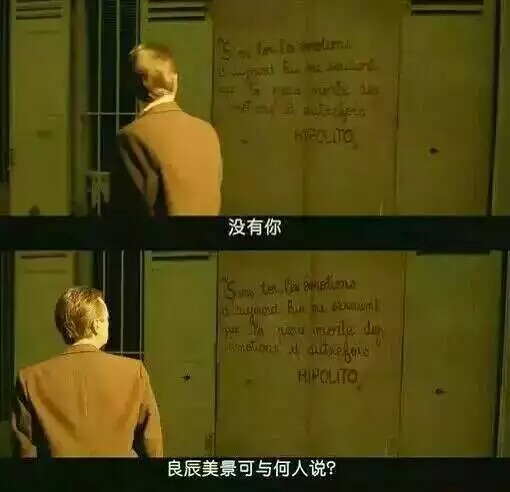 "Sans toi les émotions
d'aujourd'hui ne seraient
que la peau morte des
émotions d'autrefois
HIPOLITO
没有你
"Sans toi les émotions
d'aujourd'hui ne seraient
que la peau morte des
émotions d'autrefois
HIPOLITO
良辰美景可与何人说?